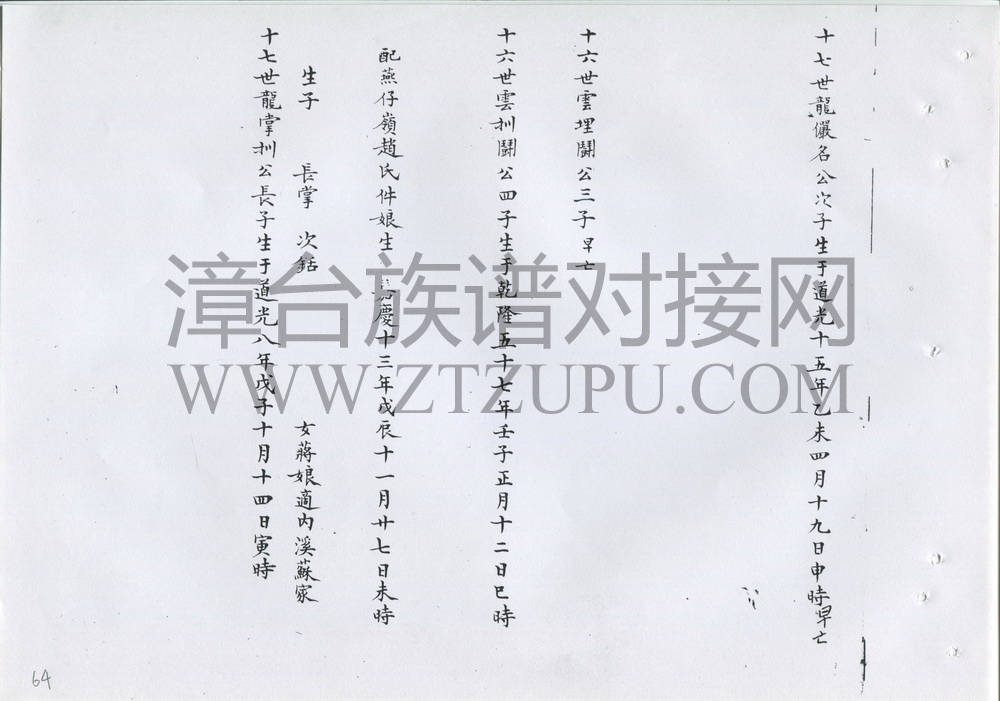 十七世龍儼名公次子生于道光十五年乙未四月十九日申時早亡
十六世雲埋鬪公三子早亡
十六世雲捌鬪公四子生于乾隆五十七年壬子正月十二日巳時
配燕仔嶺趙氏件娘生嘉慶十三年戊辰十一月廿七日未時
生子 長掌 次銛 女蔣娘適內溪蘇家
十七世龍掌捌公長子生于道光八年戊子十月十四日寅時
64
漳台族谱对接网
WWW.ZTZUPU.COM